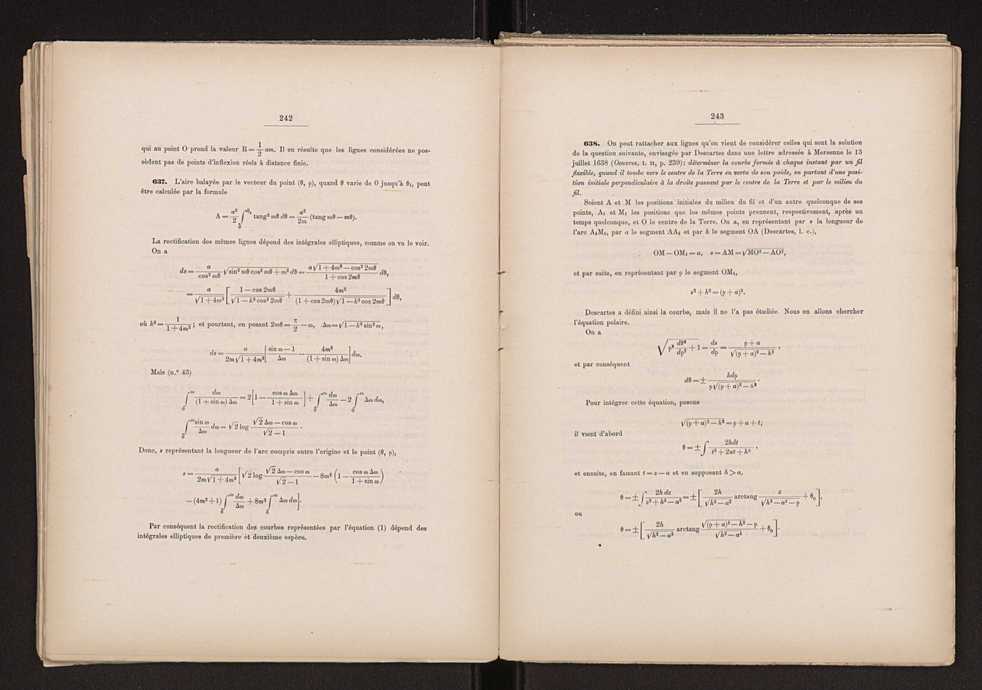 242
qui au point O prend la valeur R = 1/2 am. Il en résulte que les lignes considérées ne pos-
sèdent pas de points d'inflexion réels à distance finie.
637. L'aire balayée par le vecteur du point (θ, ρ), quand θ varie de 0 jusqu'à θ₁, peut
être calculée par la formule
A = a²/2 ∫₀^θ₁ tang² mθ dθ = a²/2m (tang mθ — mθ).
La rectification des mêmes lignes dépend des intégrales elliptiques, comme on va le voir.
On a
ds = a/cos² mθ √(sin² mθ cos² mθ + m²) dθ = a√(1 + 4m² — cos² 2mθ)/(1 + cos 2mθ) dθ,
= a/√(1 + 4m²) [(1 — cos 2mθ)/√(1 — k² cos² 2mθ) + 4m²/((1 + cos 2mθ)√(1 — k² cos 2mθ))] dθ,
où k² = 1/(1 + 4m²); et pourtant, en posant 2mθ = π/2 — ω, Δω = √(1 — k² sin² ω),
ds = a/(2m√(1 + 4m²)) [(sin ω — 1)/Δω — 4m²/((1 + sin ω) Δω)] dω.
Mais (n.° 43)
∫₀^ω dω/((1 + sin ω) Δω) = 2 [1 — cos ω Δω/(1 + sin ω)] + ∫₀^ω dω/Δω — 2 ∫₀^ω Δω dω,
∫₀^ω sin ω/Δω dω = √2 log (√2 Δω — cos ω)/(√2 — 1).
Donc, s représentant la longueur de l'arc compris entre l'origine et le point (θ, ρ),
s = a/(2m√(1 + 4m²)) [√2 log (√2 Δω — cos ω)/(√2 — 1) — 8m² (1 — cos ω Δω/(1 + sin ω))
— (4m² + 1) ∫₀^ω dω/Δω + 8m² ∫₀^ω Δω dω].
Par conséquent la rectification des courbes représentées par l'équation (1) dépend des
intégrales elliptiques de première et deuxième espèce.
243
638. On peut rattacher aux lignes qu'on vient de considérer celles qui sont la solution
de la question suivante, envisagée par Descartes dans une lettre adressée à Mersenne le 13
juillet 1638 (Oeuvres, t. II, p. 239): déterminer la courbe formée à chaque instant par un fil
flexible, quand il tombe vers le centre de la Terre en vertu de son poids, en partant d'une posi-
tion initiale perpendiculaire à la droite passant par le centre de la Terre et par le milieu du
fil.
Soient A et M les positions initiales du milieu du fil et d'un autre quelconque de ses
points, A₁ et M₁ les positions que les mêmes points prennent, respectivement, après un
temps quelconque, et O le centre de la Terre. On a, en représentant par s la longueur de
l'arc A₁M₁, par a le segment AA₁ et par h le segment OA (Descartes, l. c.),
OM — OM₁ = a, s = AM = √(MO² — AO²),
et par suite, en représentant par ρ le segment OM₁,
s² + h² = (ρ + a)².
Descartes a défini ainsi la courbe, mais il ne l'a pas étudiée. Nous en allons chercher
l'équation polaire.
On a
√(ρ² dθ²/dρ² + 1) = ds/dρ = (ρ + a)/√((ρ + a)² — h²),
et par conséquent
dθ = ± hdρ/(ρ√((ρ + a)² — h²)).
Pour intégrer cette équation, posons
√((ρ + a)² — h²) = ρ + a + t;
il vient d'abord
θ = ± ∫ 2hdt/(t² + 2at + h²),
et ensuite, en faisant t = z — a et en supposant h > a,
θ = ± ∫ 2h dz/(z² + h² — a²) = ± [2h/√(h² — a²) arctang z/√(h² — a² — ρ) + θ₀],
ou
θ = ± [2h/√(h² — a²) arctang (√((ρ + a)² — h²) — ρ)/√(h² — a²) + θ₀].